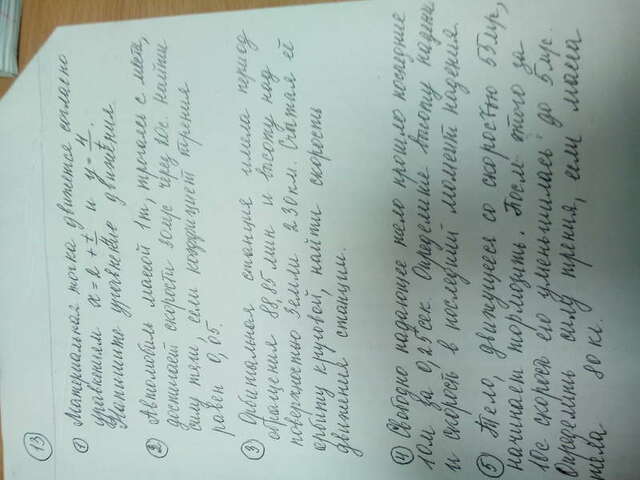 13
① Материальная точка движется согласно
уравнениям x = 2 + t/2 и y = 4/t.
Напишите уравнение движения
② Автомобиль массой 1т, трогаясь с места,
достигает скорости 30м/с через 20с. Найти
силу тяги, если коэффициент трения
равен 0,05
③ Орбитальная станция имела период
обращения 88,85 мин и высоту над
поверхностью Земли 230 км. Считая её
орбиту круговой, найти скорость
движения станции.
④ Свободно падающее тело прошло последние
10м за 0,25 сек. Определите высоту падения
и скорость в последний момент падения.
⑤ Тело, движущееся со скоростью 55м/с,
начинает тормозить. После этого за
10с скорость его уменьшилась до 5м/с.
Определить силу трения, если масса
тела 80 кг.